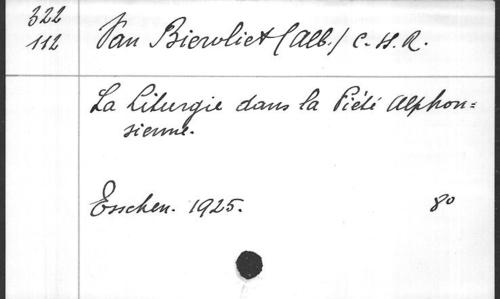 322
112
Van Biervliet (Alb.) C. ss. R.
La Liturgie dans la Piété Alphon=
sienne.
Esschen. 1925. 8º